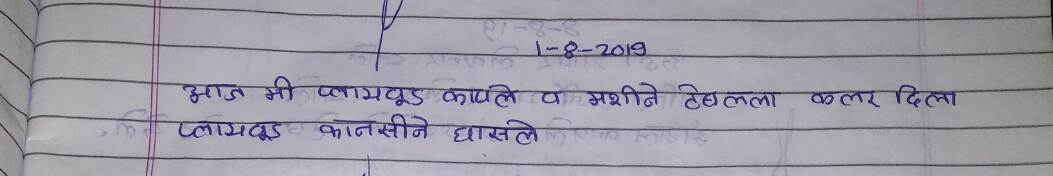 1-8-2019
आज मी प्लायवूड कापले व मशीने टेबलला कलर दिला
प्लायवूड कानसीने घासले